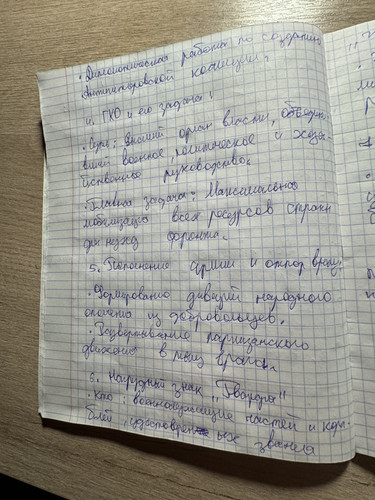 · Дипломатическая работа по созданию
Антигитлеровской коалиции.
4. ГКО и его задачи!
· Суть: Высший орган власти, объединивший военное, политическое и хозяйственное руководство.
· Главная задача: Максимальная
мобилизация всех ресурсов страны
для нужд фронта.
5. Пополнение армии и отпор врагу.
· Формирование дивизий народного
ополчения из добровольцев.
· Развертывание партизанского
движения в тылу врага.
6. Нагрудный знак „Гвардия"
· Кто: военнослужащие частей и кораблей, удостоенных звания